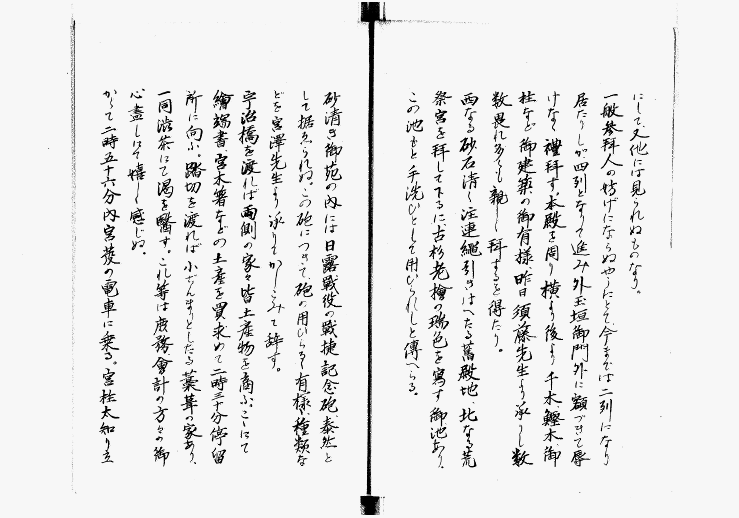 にして又他には見られぬものなり。
一般参拜人の妨げにならぬやうにとて今までは二列になり
居たりしが四列となりて進み外玉垣御門外に額づきて辱
けなく禮拜す。本殿を周り横より後より千木鰹木御
柱など御建築の御有様昨日須藤先生より承りし数
数畏れ多くも親しく拜するを得たり。
西なる砂石清く注連繩引きはへたる舊殿地、北なる荒
祭宮を拜して下るに古杉老檜の瑞色を寫す御池あり、
この池もと手洗ひとして用ひられしと傳へらる。
砂清き御苑の内には日露戰役の戰捷記念砲、泰然と
して据ゑられぬ。この砲につきて、砲の用ひらるゝ有様、種類な
どを宮澤先生より承りてかしこみて辞す。
宇治橋を渡れば両側の家々皆土産物を商ふ、こゝにて
繪端書、宮木箸などの土産を買求めて二時三十分停留
所に向ふ。踏切を渡れば小ぢんまりとしたる藁葺の家あり、
一同澁茶にて渇を醫す。これ等は庶務、會計の方々の御
心盡しにて嬉しく感じぬ。
かくて二時五十六分内宮發の電車に乘る。宮柱太知り立